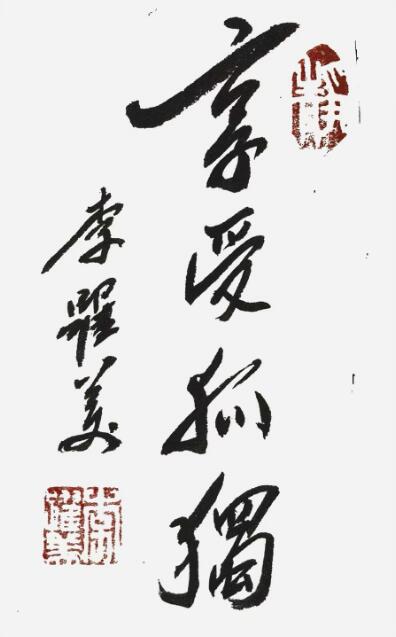 享受孤獨
李躍美